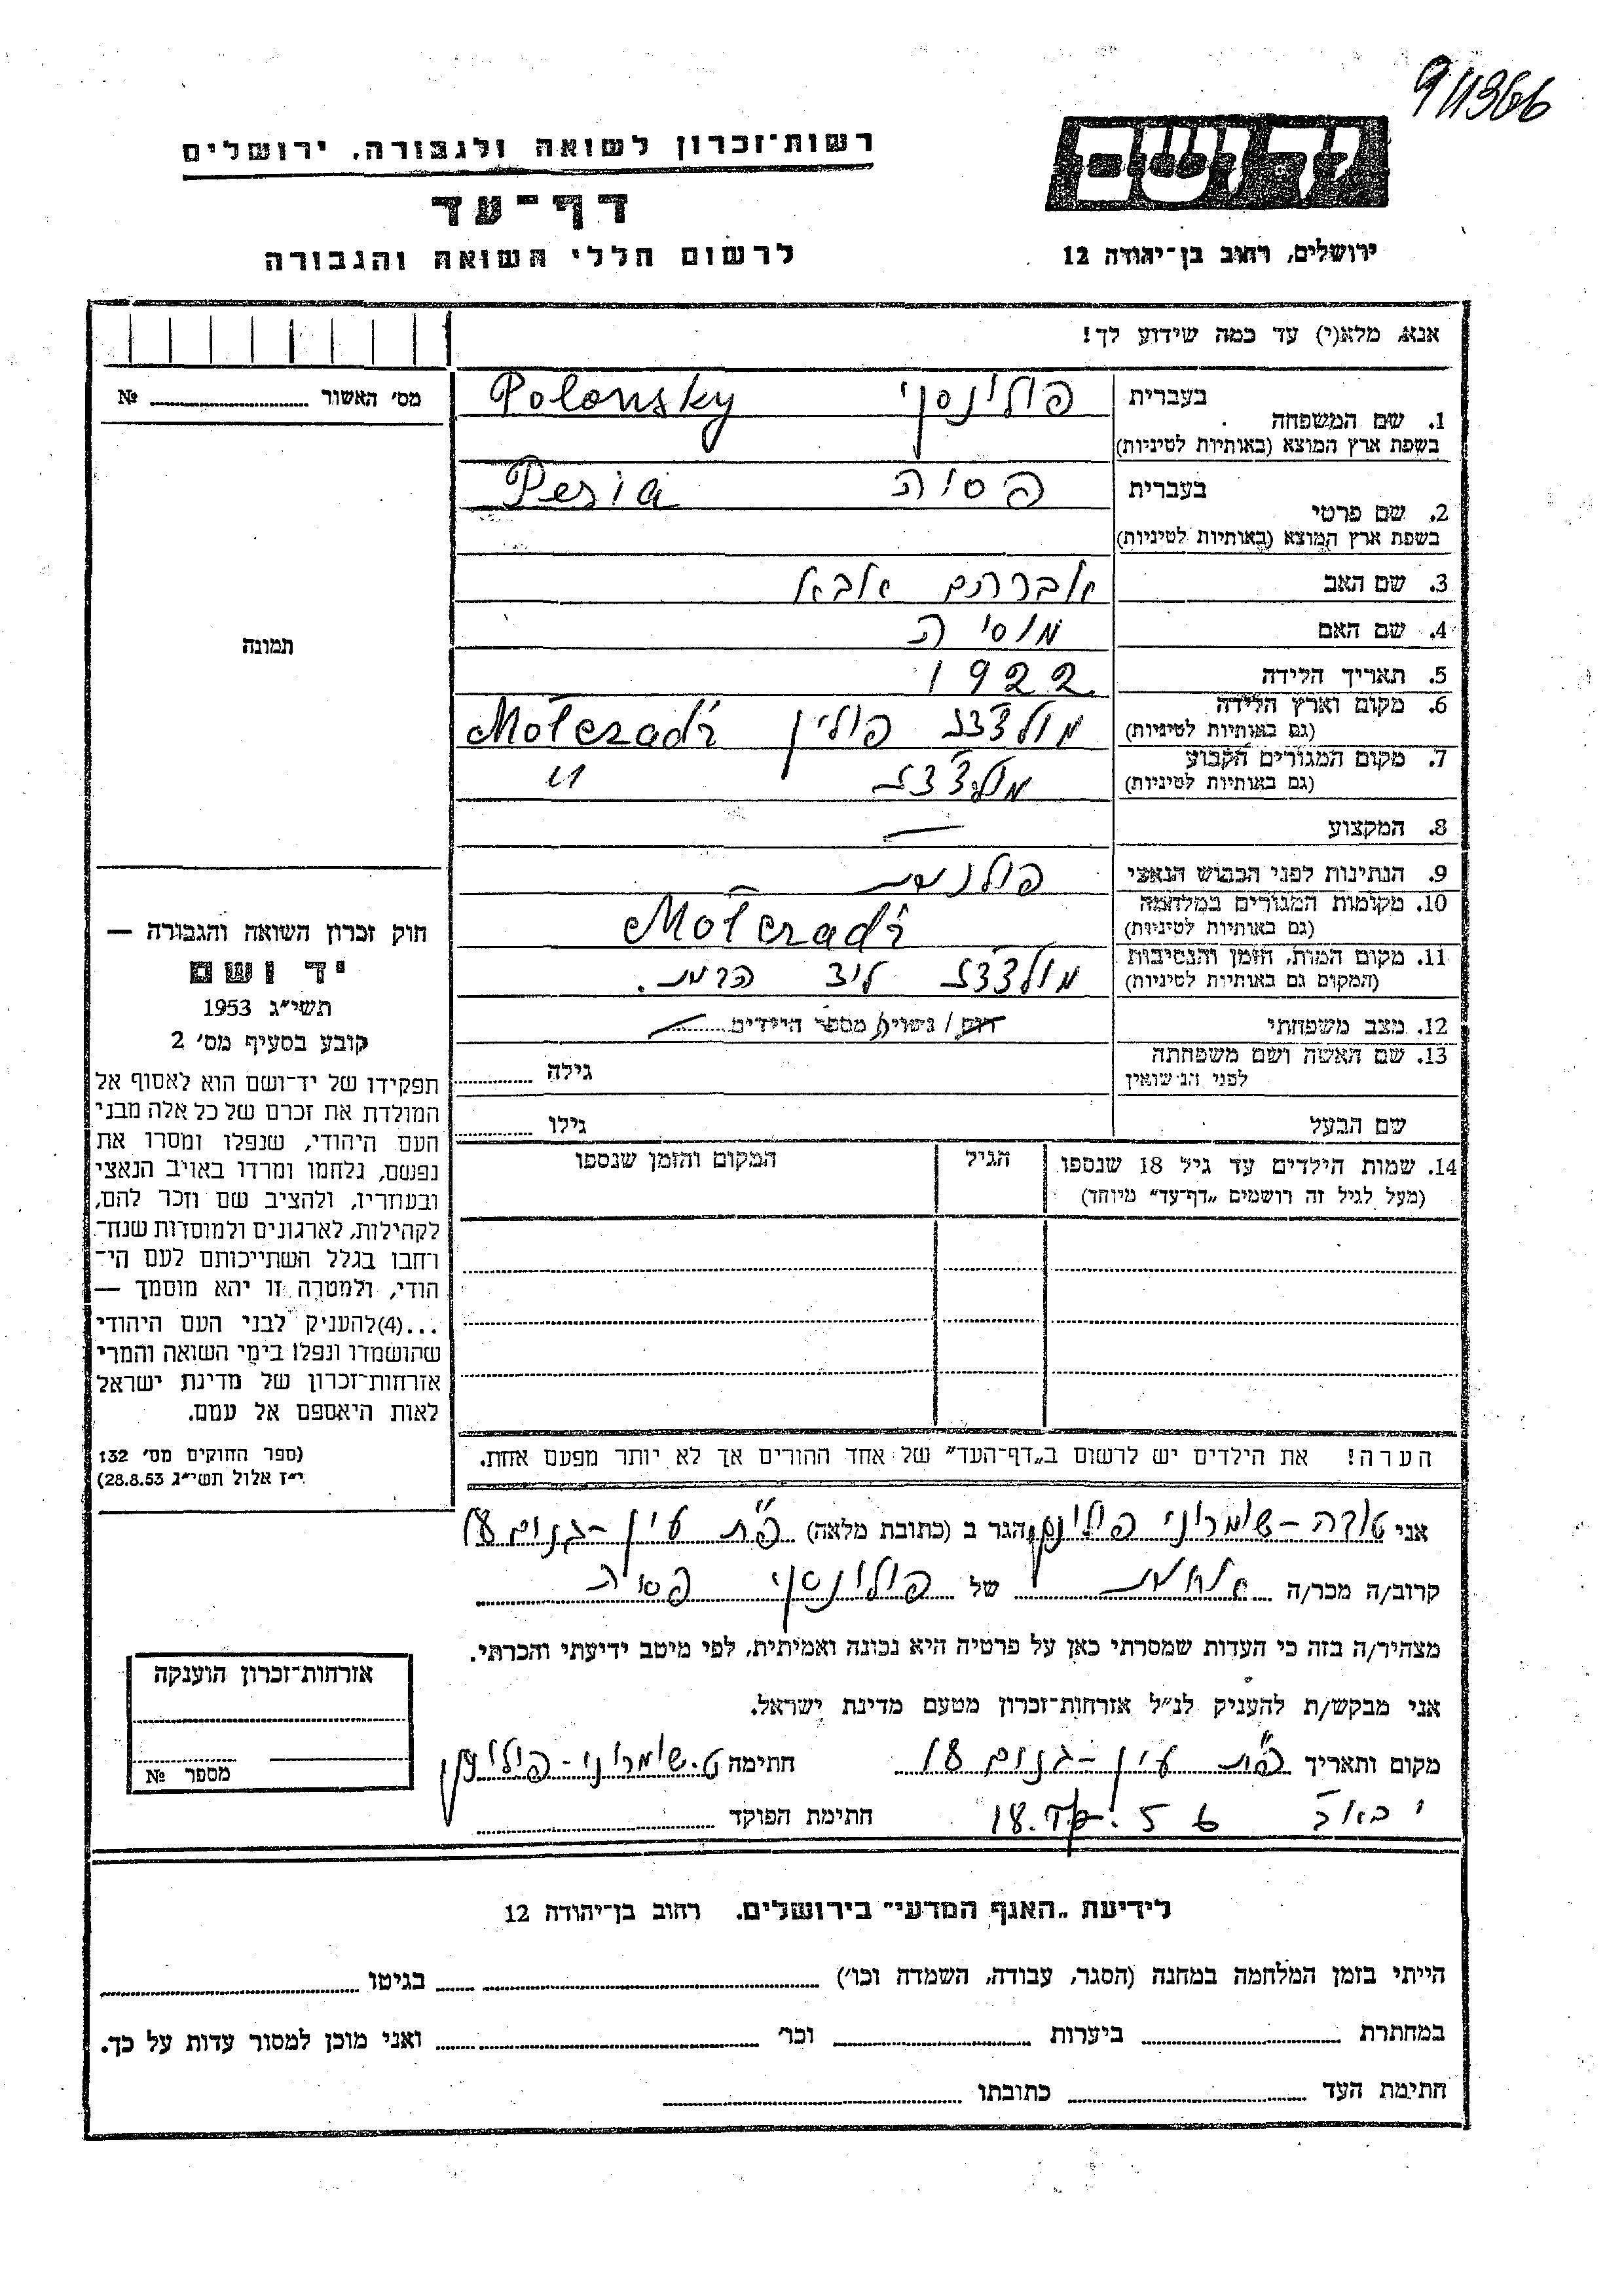 9/1366
רשות־זכרון לשואה ולגבורה, ירושלים
דף־עד
לרשום חללי השואה והגבורה
יד ושם
ירושלים, רחוב בן־יהודה 12
אנא, מלא(י) עד כמה שידוע לך!
מס׳ האשור № ....................
תמונה
1. שם המשפחה
בעברית פולונסקי Polonsky
בשפת ארץ המוצא (באותיות לטיניות)
2. שם פרטי
בעברית פסיה Pesia
בשפת ארץ המוצא (באותיות לטיניות)
3. שם האב אברהם אבא
4. שם האם מוסיה
5. תאריך הלידה 1922
6. מקום וארץ הלידה מולצ׳דז פולין Motczadź
(גם באותיות לטיניות)
7. מקום המגורים הקבוע מולצ׳דז "
(גם באותיות לטיניות)
8. המקצוע —
9. הנתינות לפני הכבוש הנאצי פולנית
10. מקומות המגורים במלחמה Motczadź
(גם באותיות לטיניות)
11. מקום המות, הזמן והנסיבות מולצ׳דז ליד
(המקום גם באותיות לטיניות)
12. מצב משפחתי רווק/ נשוי/ מספר הילדים
13. שם האשה ושם משפחתה גילה
לפני הנישואין
שם הבעל גילו
14. שמות הילדים עד גיל 18 שנספו הגיל המקום והזמן שנספו
(מעל לגיל זה רושמים „דף־עד״ מיוחד)
הערה! את הילדים יש לרשום ב„דף־העד״ של אחד ההורים אך לא יותר מפעם אחת.
חוק זכרון השואה והגבורה —
יד ושם
תשי״ג 1953
קובע בסעיף מס׳ 2
תפקידו של יד־ושם הוא לאסוף אל
המולדת את זכרם של כל אלה מבני
העם היהודי, שנפלו ומסרו את
נפשם, נלחמו ומרדו באויב הנאצי
ובעוזריו, ולהציב שם וזכר להם,
לקהילות, לארגונים ולמוסדות שנח־
רחבו בגלל השתייכותם לעם הי־
הודי, ולמטרה זו יהא מוסמך —
...(4)להעניק לבני העם היהודי
שהושמדו ונפלו בימי השואה והמרי
אזרחות־זכרון של מדינת ישראל
לאות היאספם אל עמם.
(ספר החוקים מס׳ 132
י״ז אלול תשי״ג 28.8.53)
אני טובה-שומרוני פולונסקי הגר ב (כתובת מלאה) פ״ת עין-גנים 18
קרוב/ה מכר/ה אחות של פולונסקי פסיה
מצהיר/ה בזה כי העדות שמסרתי כאן על פרטיה היא נכונה ואמיתית, לפי מיטב ידיעתי והכרתי.
אני מבקש/ת להעניק לנ״ל אזרחות־זכרון מטעם מדינת ישראל.
מקום ותאריך פ״ת עין-גנים 18 חתימה ט. שומרוני-פולונסקי
חתימת הפוקד
אזרחות־זכרון הוענקה
מספר №
לידיעת „האגף המדעי״ בירושלים. רחוב בן־יהודה 12
הייתי בזמן המלחמה במחנה (הסגר, עבודה, השמדה וכו׳) בגיטו
במחתרת ביערות וכו׳ ואני מוכן למסור עדות על כך.
חתימת העד כתובתו